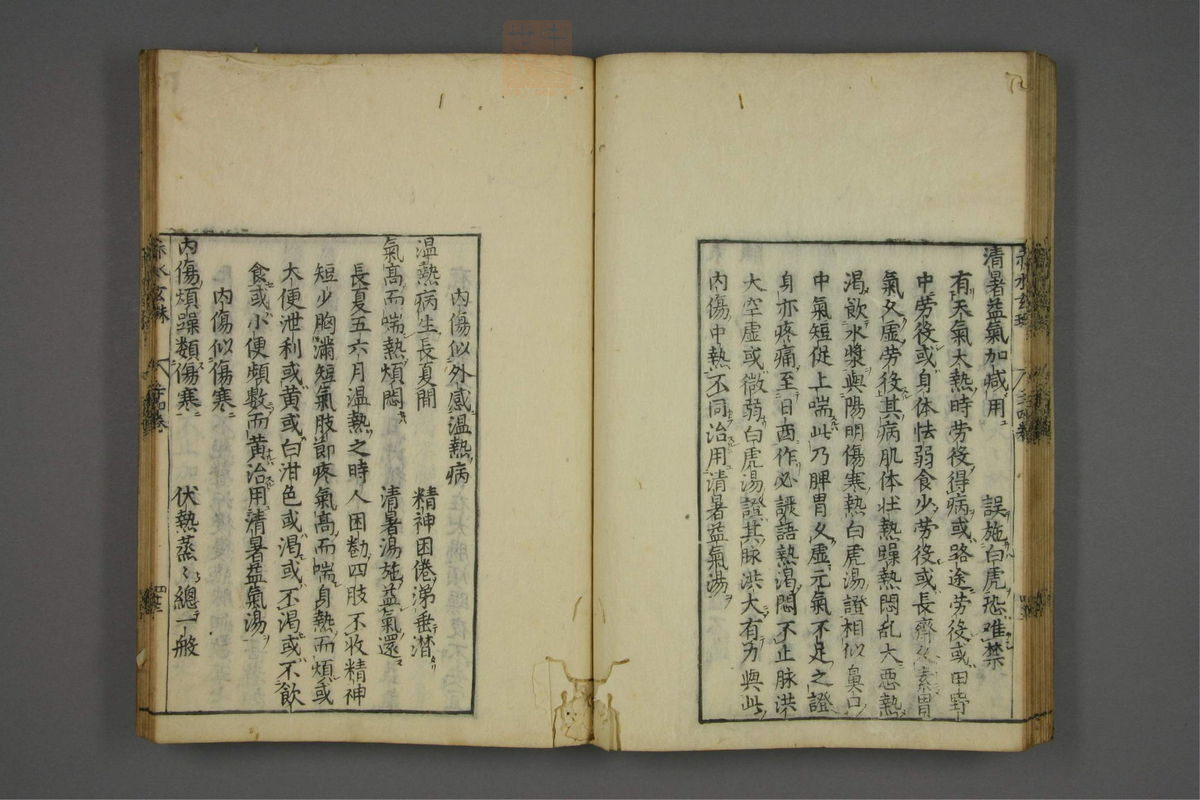 清暑益氣加減用 誤施白虎恐難禁
有天氣大熱時勞役得病或路途勞役或田野
中勞役或身体怯弱食少勞役或長齋久素胃
氣久虛勞役其病肌体壮熱躁熱悶乱大悪熱
渴飲水漿與陽明傷寒熱白虎湯證相似鼻口
中氣短促上喘此乃脾胃久虛元氣不足之證
身亦疼痛至日西作必譫語熱渴悶不止脉洪
大空虛或微弱白虎湯證其脉洪大有力與此
内傷中熱不同治用清暑益氣湯
内傷似外感温熱病
温熱病生長夏間 精神困倦涕垂潸
氣高而喘熱煩悶 清暑湯施益氣還
長夏五六月温熱之時人困倦四肢不收精神
短少胸滿短氣肢節疼氣高而喘身熱而煩或
大便泄利或黄或白泔色或渴或不渴或不飲
食或小便頻數而黄治用清暑益氣湯
内傷似傷寒
内傷煩躁類傷寒 伏熱蒸々總一般